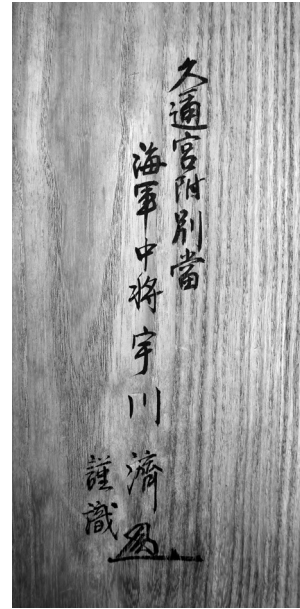 久邇宮附別當
海軍中将宇川濟
謹識